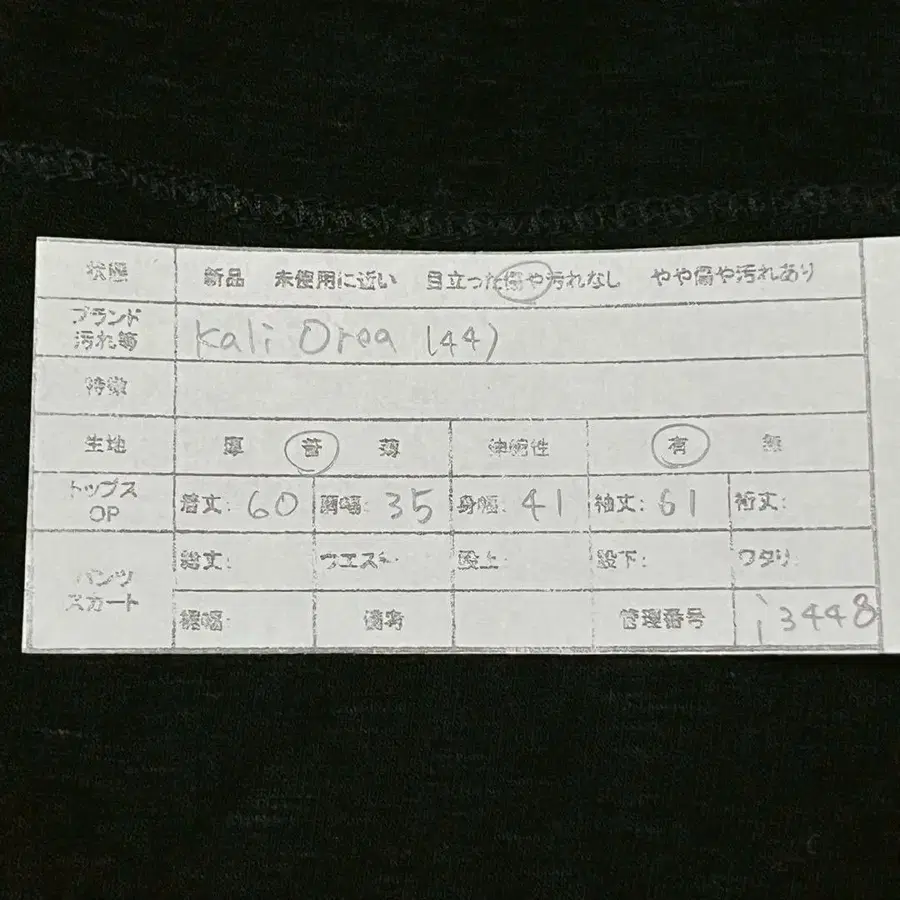 状態 新品 未使用に近い 目立った傷や汚れなし やや傷や汚れあり
ブランド
汚れ等 Kali Orea (44)
特徴
生地 厚 普 薄 伸縮性 有 無
トップス
OP 着丈: 60 肩幅: 35 身幅: 41 袖丈: 61 裄丈:
パンツ
スカート
総丈: ウエスト: 股上: 股下: ワタリ:
裾幅: 備考 管理番号 i3448